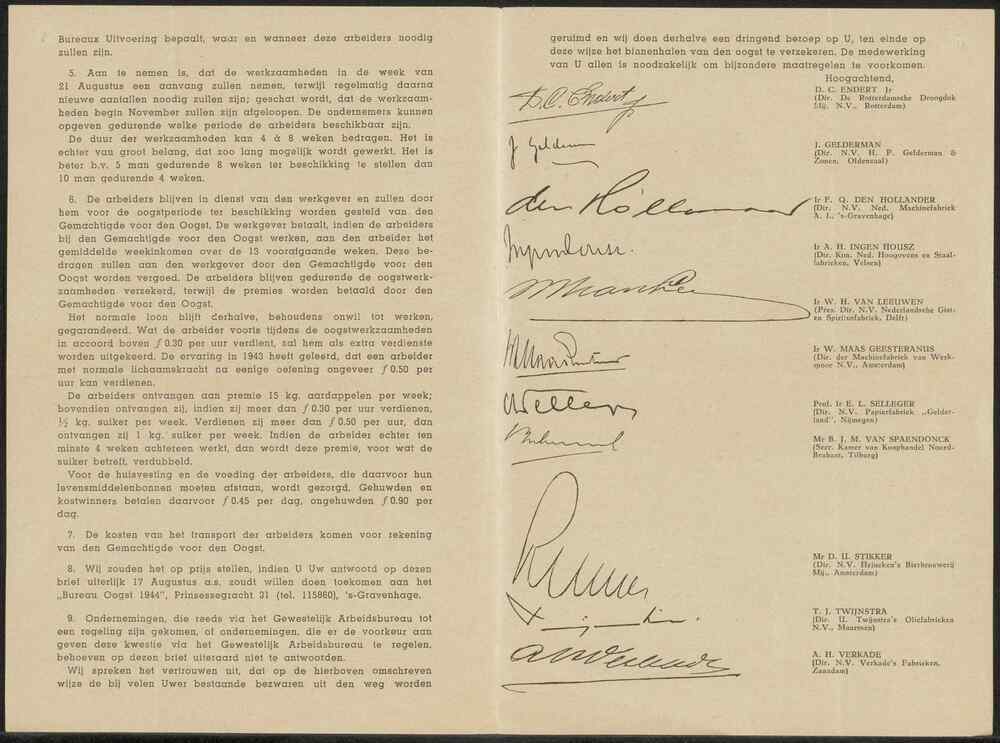 Bureaux Uitvoering bepaalt, waar en wanneer deze arbeiders noodig
zullen zijn.
5. Aan te nemen is, dat de werkzaamheden in de week van
21 Augustus een aanvang zullen nemen, terwijl regelmatig daarna
nieuwe aantallen noodig zullen zijn; geschat wordt, dat de werkzaam-
heden begin November zullen zijn afgeloopen. De ondernemers kunnen
opgeven gedurende welke periode de arbeiders beschikbaar zijn.
De duur der werkzaamheden kan 4 à 8 weken bedragen. Het is
echter van groot belang, dat zoo lang mogelijk wordt gewerkt. Het is
beter b.v. 5 man gedurende 8 weken ter beschikking te stellen dan
10 man gedurende 4 weken.
6. De arbeiders blijven in dienst van den werkgever en zullen door
hem voor de oogstperiode ter beschikking worden gesteld van den
Gemachtigde voor den Oogst. De werkgever betaalt, indien de arbeiders
bij den Gemachtigde voor den Oogst werken, aan den arbeider het
gemiddelde weekinkomen over de 13 voorafgaande weken. Deze be-
dragen zullen aan den werkgever door den Gemachtigde voor den
Oogst worden vergoed. De arbeiders blijven gedurende de oogstwerk-
zaamheden verzekerd, terwijl de premies worden betaald door den
Gemachtigde voor den Oogst.
Het normale loon blijft derhalve, behoudens onwil tot werken,
gegarandeerd. Wat de arbeider voorts tijdens de oogstwerkzaamheden
in accoord boven ƒ 0.30 per uur verdient, zal hem als extra verdienste
worden uitgekeerd. De ervaring in 1943 heeft geleerd, dat een arbeider
met normale lichaamskracht na eenige oefening ongeveer ƒ 0.50 per
uur kan verdienen.
De arbeiders ontvangen aan premie 15 kg. aardappelen per week;
bovendien ontvangen zij, indien zij meer dan ƒ 0.30 per uur verdienen,
½ kg. suiker per week. Verdienen zij meer dan ƒ 0.50 per uur, dan
ontvangen zij 1 kg. suiker per week. Indien de arbeider echter ten
minste 4 weken achtereen werkt, dan wordt deze premie, voor wat de
suiker betreft, verdubbeld.
Voor de huisvesting en de voeding der arbeiders, die daarvoor hun
levensmiddelenbonnen moeten afstaan, wordt gezorgd. Gehuwden en
kostwinners betalen daarvoor ƒ 0.45 per dag, ongehuwden ƒ 0.90 per
dag.
7. De kosten van het transport der arbeiders komen voor rekening
van den Gemachtigde voor den Oogst.
8. Wij zouden het op prijs stellen, indien U Uw antwoord op dezen
brief uiterlijk 17 Augustus a.s. zoudt willen doen toekomen aan het
„Bureau Oogst 1944”, Prinsessegracht 21 (tel. 115860), 's-Gravenhage.
9. Ondernemingen, die reeds via het Gewestelijk Arbeidsbureau tot
een regeling zijn gekomen, of ondernemingen, die er de voorkeur aan
geven deze kwestie via het Gewestelijk Arbeidsbureau te regelen,
behoeven op dezen brief uiteraard niet te antwoorden.
Wij spreken het vertrouwen uit, dat op de hierboven omschreven
wijze de bij velen Uwer bestaande bezwaren uit den weg worden
geruimd en wij doen derhalve een dringend beroep op U, ten einde op
deze wijze het binnenhalen van den oogst te verzekeren. De medewerking
van U allen is noodzakelijk om bijzondere maatregelen te voorkomen.
Hoogachtend,
D. C. Endert Jr
D. C. ENDERT Jr
(Dir. De Rotterdamsche Droogdok
Mij. N.V., Rotterdam)
J Gelderman
J. GELDERMAN
(Dir. N.V. H. P. Gelderman &
Zonen, Oldenzaal)
den Hollander
Ir F. Q. DEN HOLLANDER
(Dir. N.V. Ned. Machinefabriek
A. I., 's-Gravenhage)
Ir A. H. INGEN HOUSZ
(Dir. Kon. Ned. Hoogovens en Staal-
fabrieken, Velsen)
Ir W. H. VAN LEEUWEN
(Pres. Dir. N.V. Nederlandsche Gist-
en Spiritusfabriek, Delft)
Ir W. MAAS GEESTERANUS
(Dir. der Machinefabriek van Werk-
spoor N.V., Amsterdam)
Prof. Ir E. L. SELLEGER
(Dir. N.V. Papierfabriek „Gelder-
land”, Nijmegen)
Mr B. J. M. VAN SPAENDONCK
(Secr. Kamer van Koophandel Noord-
Brabant, Tilburg)
Mr D. U. STIKKER
(Dir. N.V. Heineken's Bierbrouwerij
Mij., Amsterdam)
T. J. TWIJNSTRA
(Dir. U. Twijnstra's Oliefabrieken
N.V., Maarssen)
AH Verkade
A. H. VERKADE
(Dir. N.V. Verkade's Fabrieken,
Zaandam)